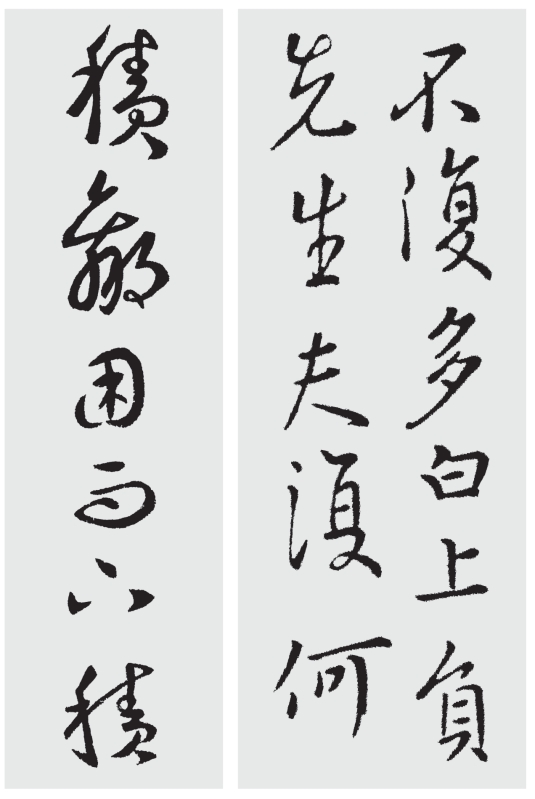 不復多白上負
先生夫復何
積羸困而下積